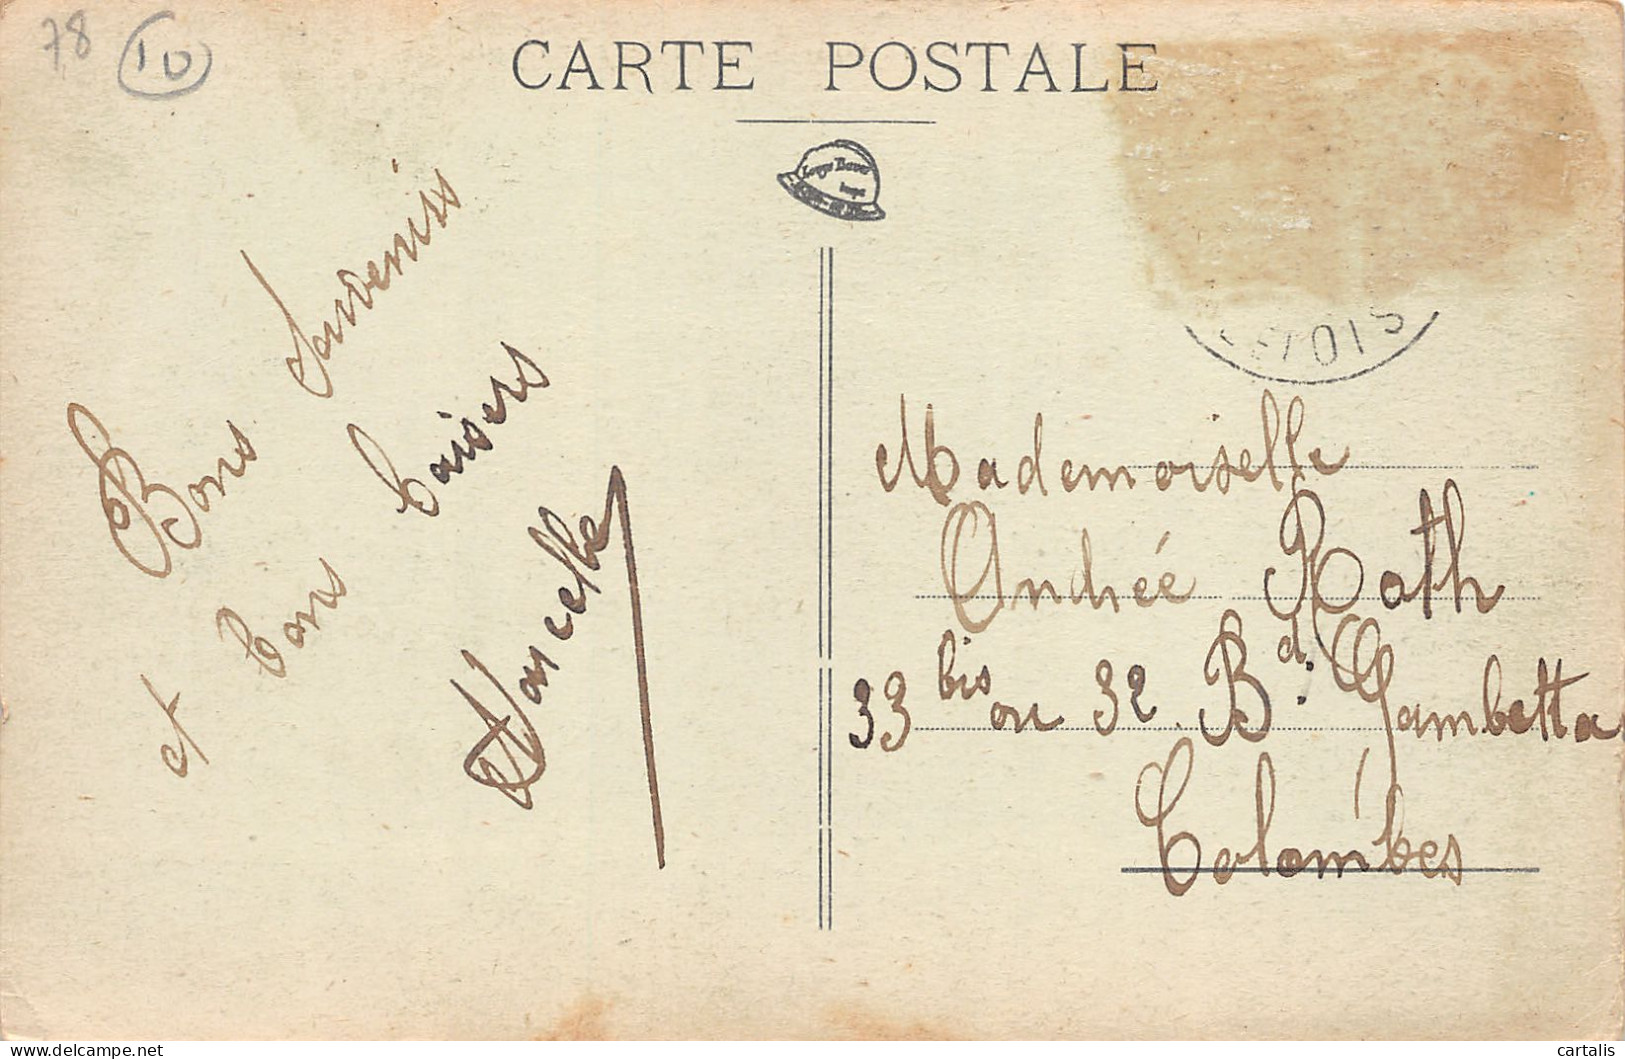 78 10
CARTE POSTALE
Bons Souvenirs
et bons baisers
Marcelle
Mademoiselle
Andrée Roth
33 bis ou 32 Bd. Gambetta
Colombes
cartalis